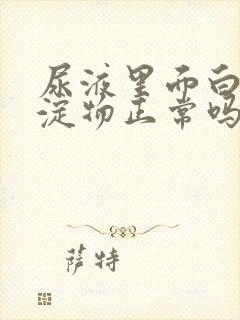 尿液里面白
淀物正常吗
萨特